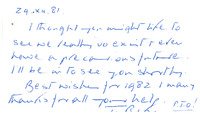 29.xii.81
I thought you might like to
see we really do exist & even
have a precarious future.
I'll be in to see you shortly.
Best wishes for 1982 & many
thanks for all your help.
P.T.O!